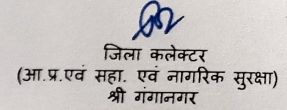 जिला कलेक्टर
(आ.प्र.एवं सहा. एवं नागरिक सुरक्षा)
श्री गंगानगर